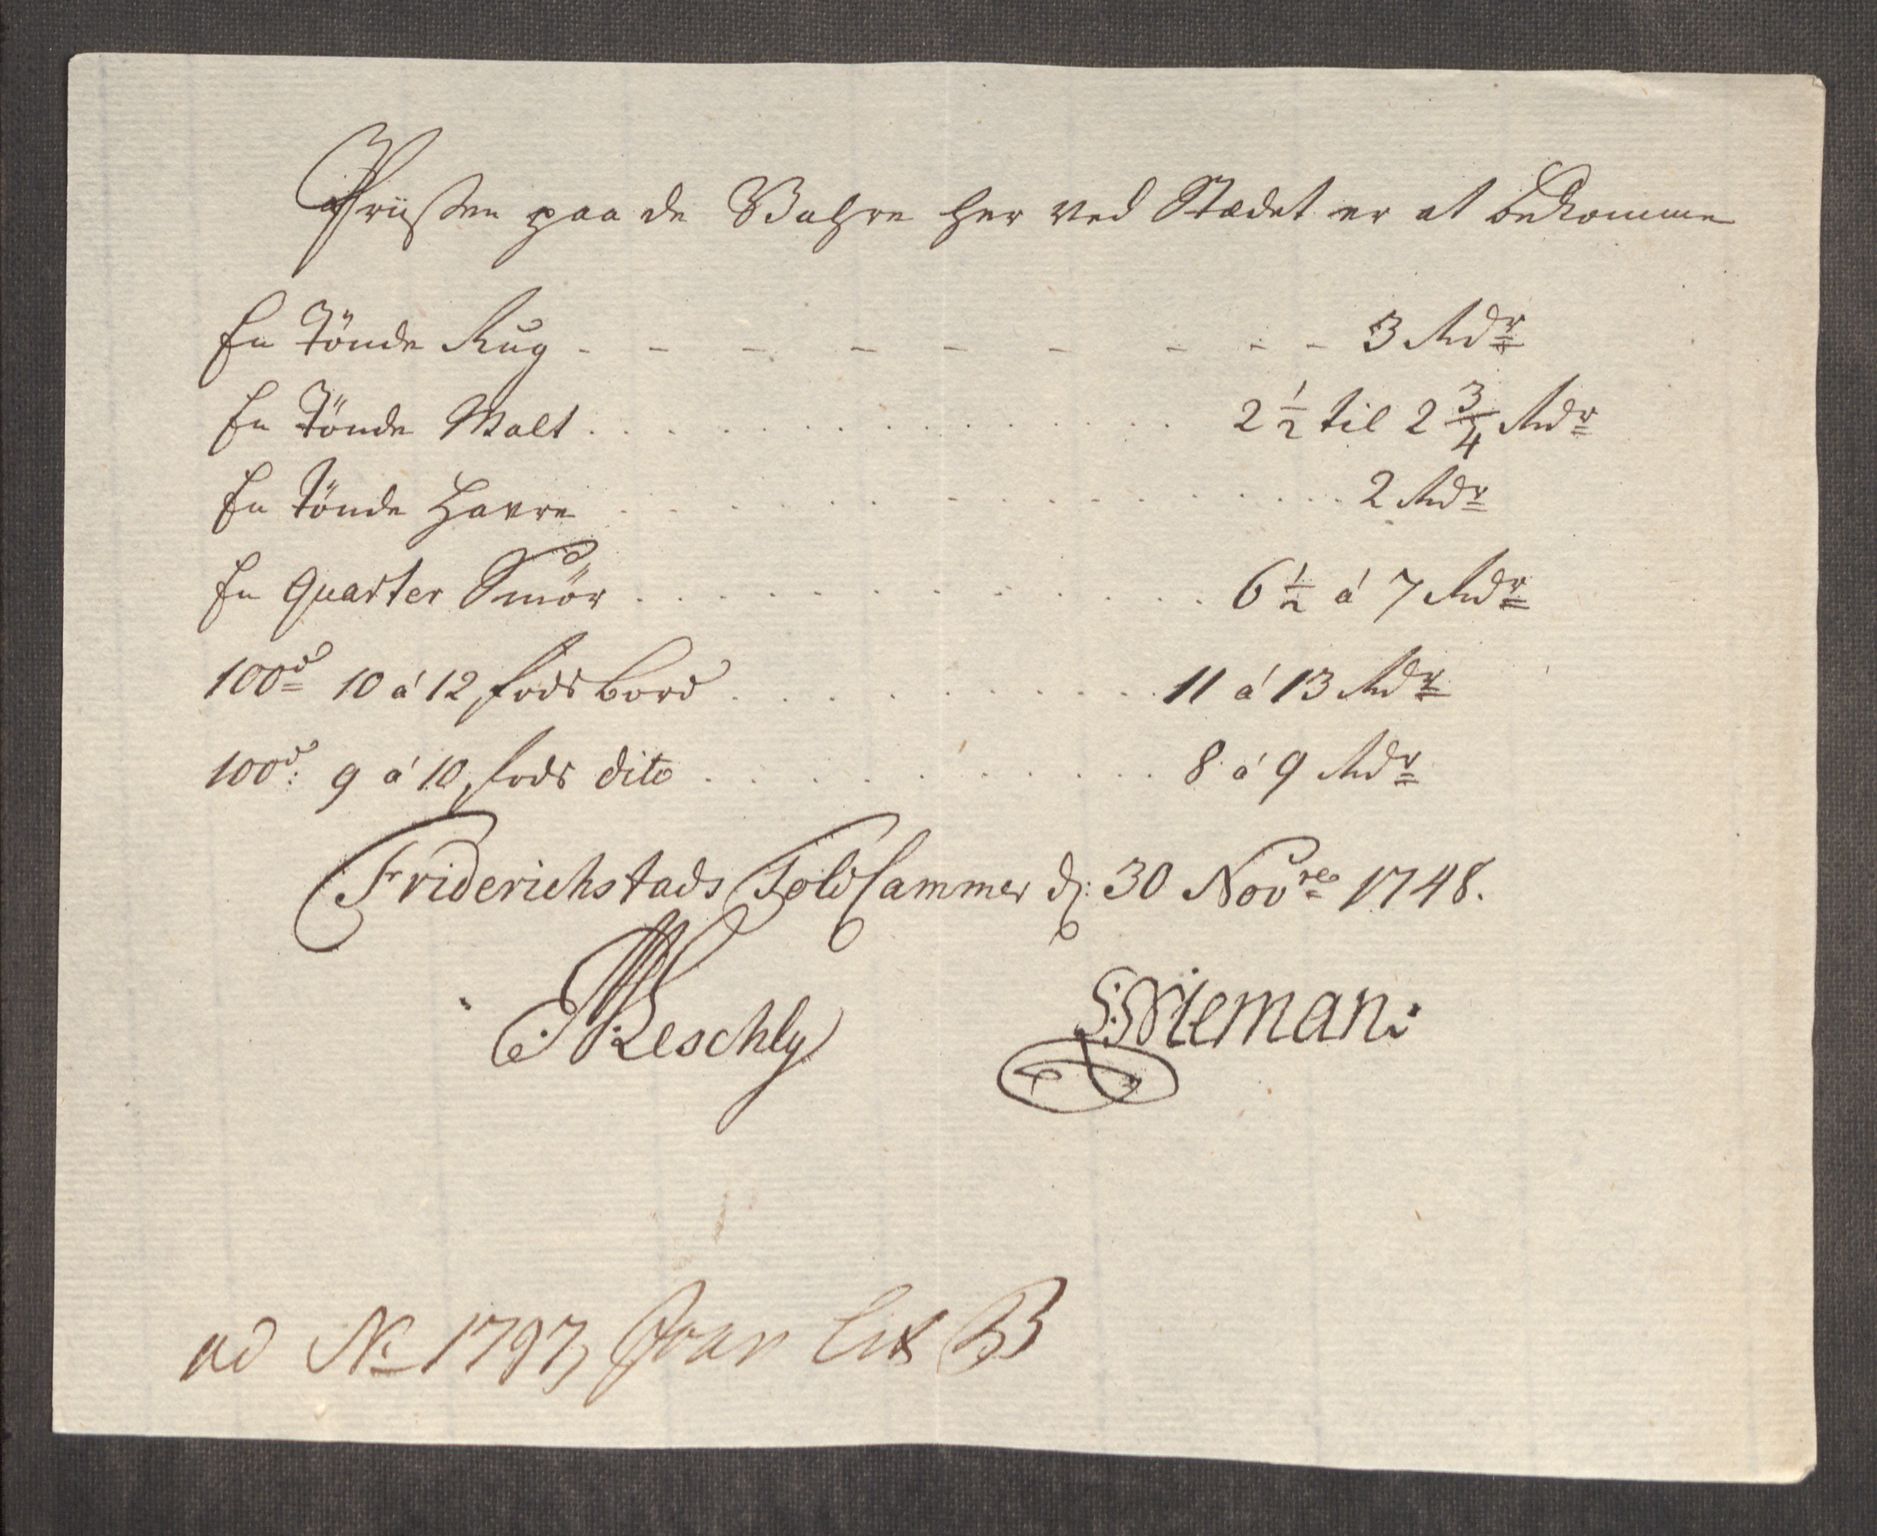 Priissen paa de Wahre her ved Stædet er at bekomme
En Tönde Rug - - - - - - - - - 3 Rdr
En Tönde Malt . . . . . . . . . . 2 1/2 til 2 3/4 Rdr
En Tönde Havre . . . . . . . . . . 2 Rdr
En Quarter Smör . . . . . . . . . . 6 1/2 á 7 Rdr
100d 10 á 12 fods bord . . . . . . . . . . 11 á 13 Rdr
100d: 9 á 10 fods dito . . . . . . . . . . 8 á 9 Rdr
Friderichstads Told Cammer d: 30 Novre 1748.
Reschly S: Nieman:
ad No 1797 Lit B